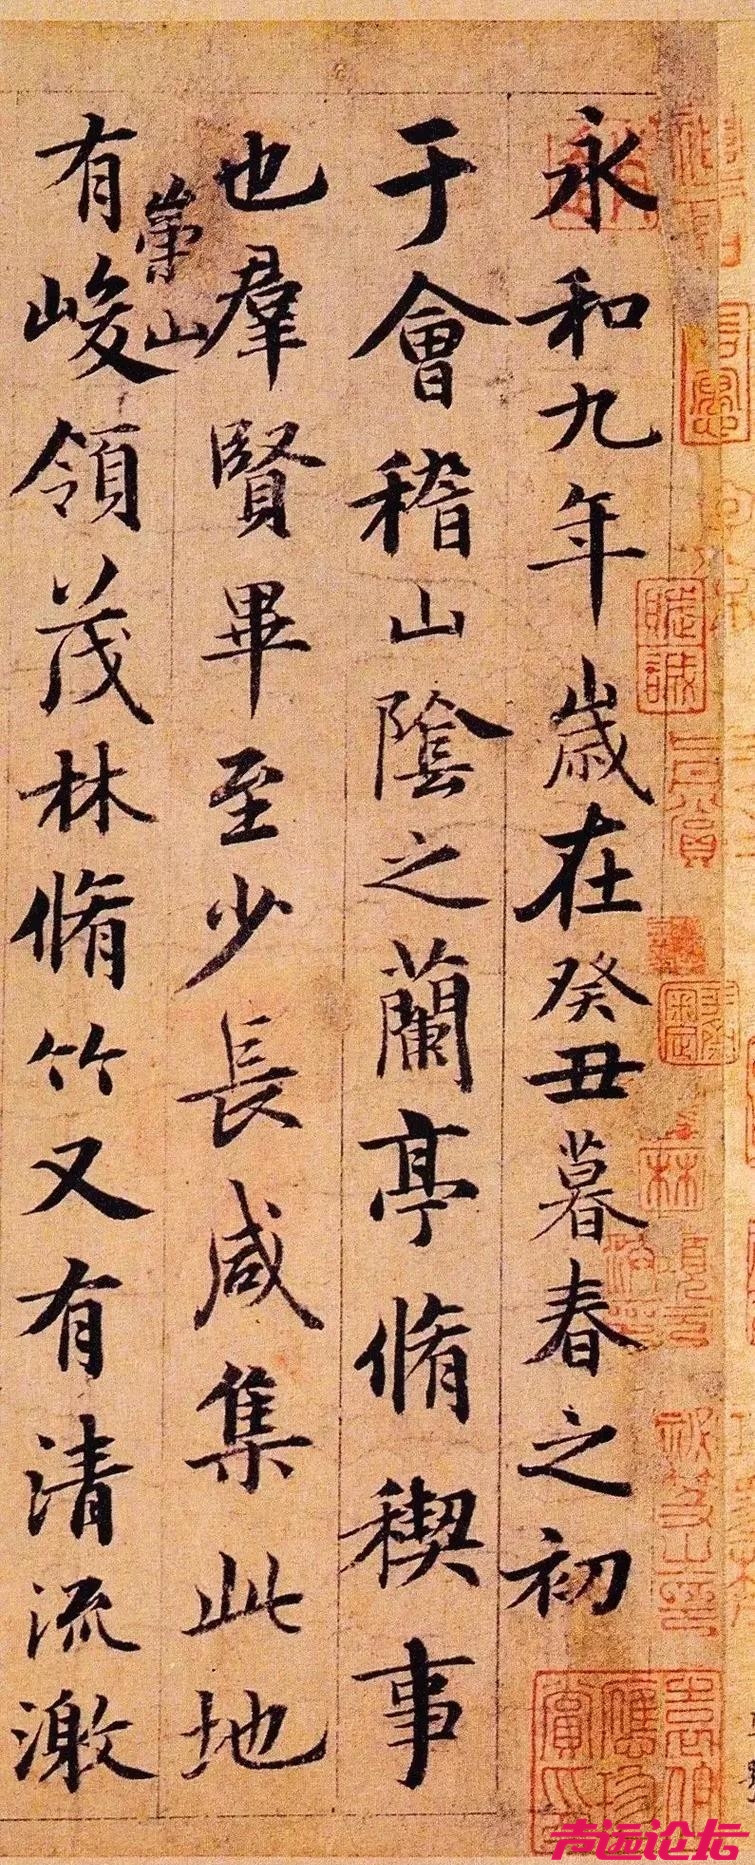 永和九年歳在癸丑暮春之初
于會稽山隂之蘭亭脩稧事
也羣賢畢至少長咸集此地
崇山
有峻領茂林脩竹又有清流激
聲遠论坛